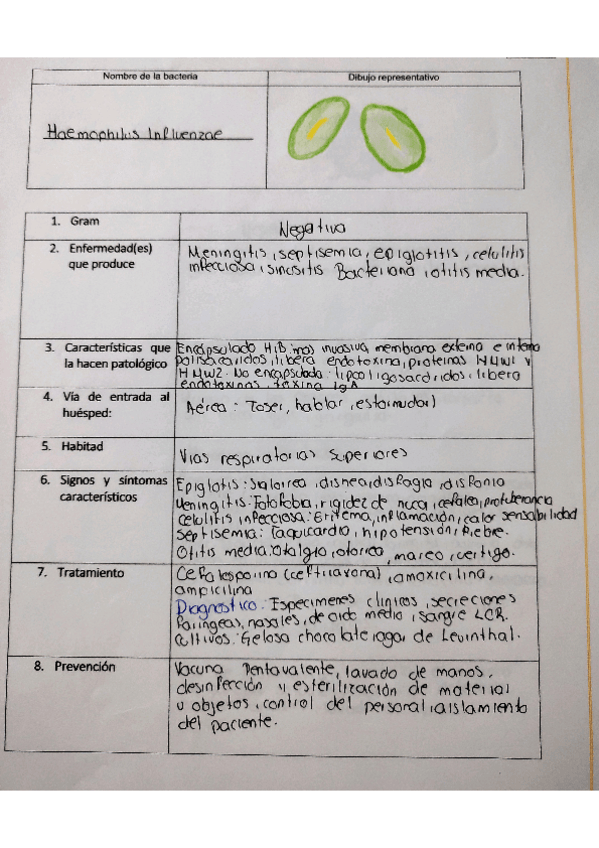 Nombre de la bacteria
Dibujo representativo
Haemophilus Influenzae
1. Gram
Negativo
2. Enfermedad(es)
que produce
Meningitis, septisemia, epiglotitis, celulitis
infecciosa, sinositis Bacteriana, otitis media.
3. Características que
la hacen patológico
Encapsulado HiB: mas invasiva, membrana externa e interna
polisacaridos, libera endotoxina, proteinas HMW1 y
HMW2. No encapsulada: lipooligosacaridos, libera
endotoxinas, toxina IgA
4. Vía de entrada al
huésped:
Aérea: Toser, hablar, estornudar)
5. Habitad
Vias respiratorias Superiores
6. Signos y síntomas
característicos
Epiglotis: Sialorrea, disnea, disfagia, disfonia
Meningitis: Fotofobia, rigidez de nuca, cefalea, protuberancia
celulitis infecciosa: Eritema, inflamación, calor sensabilidad
Septisemia: Taquicardia, hipotensión, fiebre.
Otitis media: Otalgia, otorrea, mareo, vertigo.
7. Tratamiento
Cefalosporina (ceftriaxona), amoxicilina,
ampicilina
Diagnostico: Especimenes clínicos, secreciones
Faringeas, nasales, de oido medio, sangre LCR.
Cultivos: Gelosa chocolate, agar de Levinthal.
8. Prevención
Vacuna Pentavalente, lavado de manos,
desinfección y esterilización de material
u objetos, control del personal, aislamiento
del paciente.